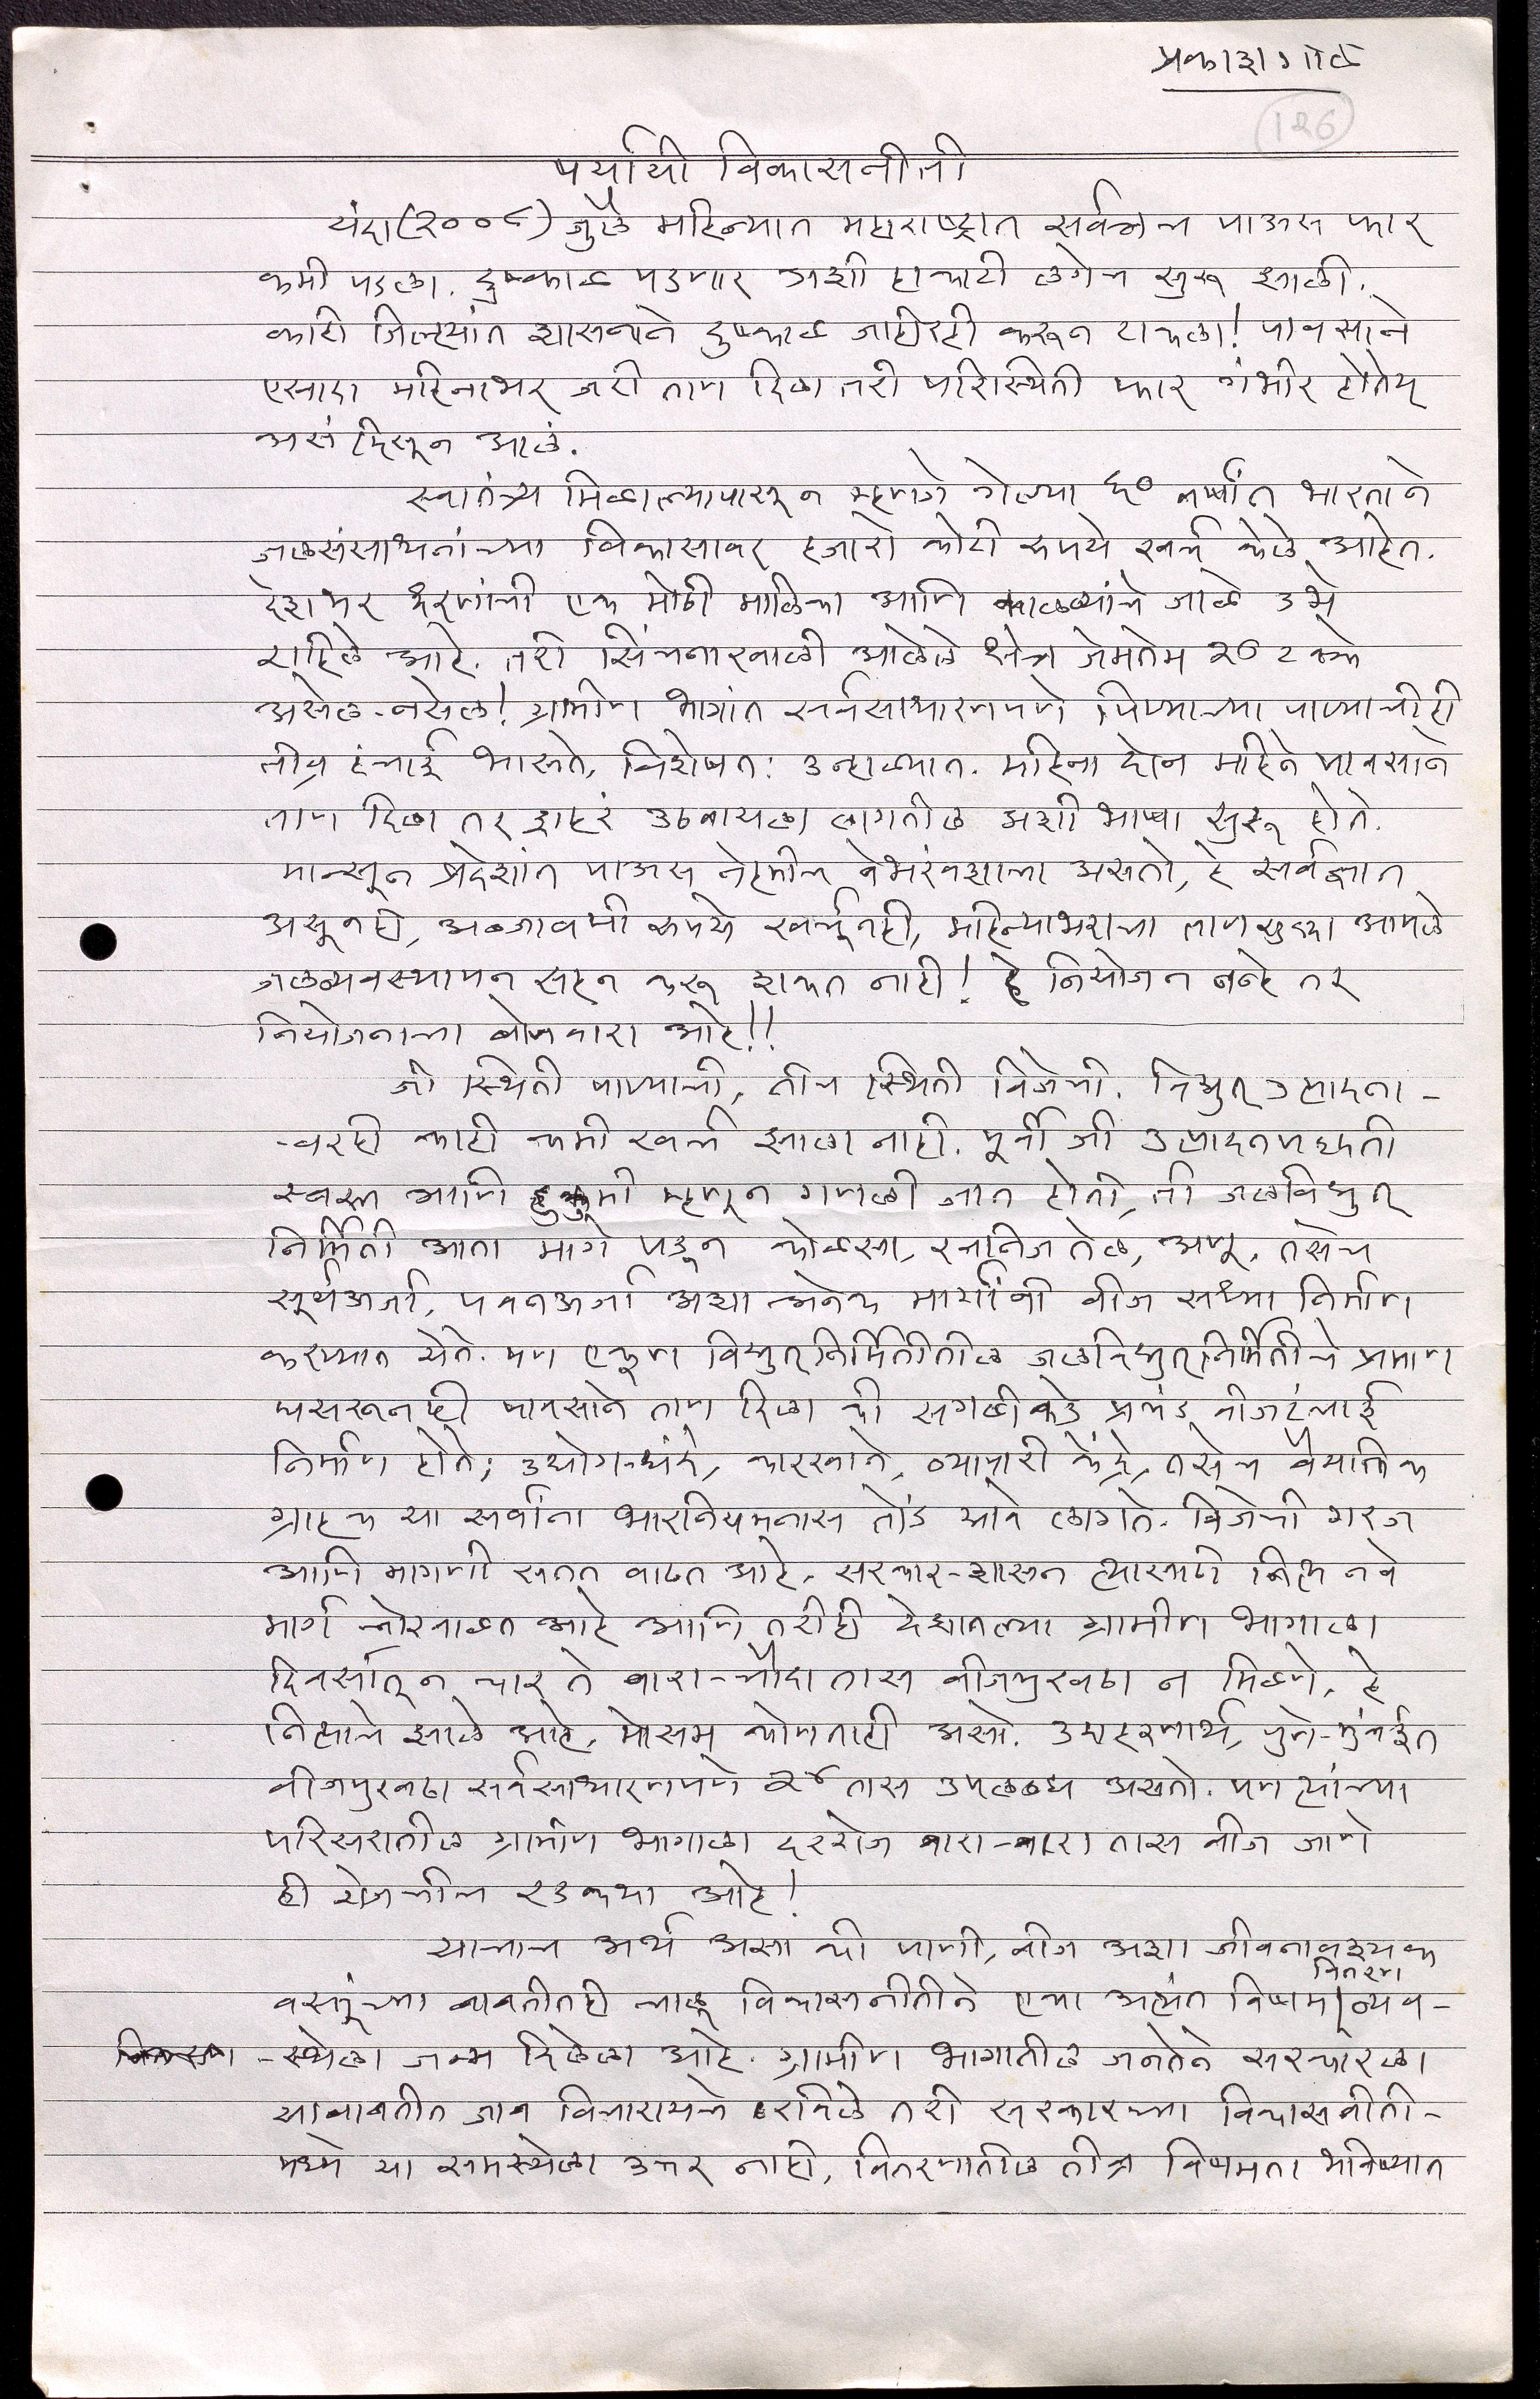 प्रकाश गोळे
126
पर्यायी विकासनीती
यंदा (२००८) जुलै महिन्यात महाराष्ट्रात सर्वत्रच पाऊस फार
कमी पडला. दुष्काळ पडणार अशी हाकाटी लगेच सुरू झाली.
काही जिल्ह्यांत शासनाने दुष्काळ जाहीरही करून टाकला! पावसाने
एखादा महिनाभर जरी ताण दिला तरी परिस्थिती फार गंभीर होतेय
असं दिसून आलं.
स्वातंत्र्य मिळाल्यापासून म्हणजे गेल्या ६० वर्षांत भारताने
जळसंसाधनांच्या विकासावर हजारो कोटी रुपये खर्च केले आहेत.
देशभर धरणांची एक मोठी मालिका आणि कालव्यांचे जाळे उभे
राहिले आहे. तरी सिंचनाखाली आलेले क्षेत्र जेमतेम २० टक्के
असेल-नसेल! ग्रामीण भागांत सर्वसाधारणपणे पिण्याच्या पाण्याचीही
तीव्र टंचाई भासते, विशेषतः उन्हाळ्यात. महिना दोन महिने पावसाने
ताण दिला तर शहरं उठवायला लागतील अशी भाषा सुरू होते.
मान्सून प्रदेशांत पाऊस नेहमीच बेभरंवशाचा असतो, हे सर्वज्ञात
असूनही, अब्जावधी रुपये खर्चूनही, महिन्याभराचा ताणसुद्धा आपले
जलव्यवस्थापन सहन करू शकत नाही! हे नियोजन नव्हे तर
नियोजनाचा बोजवारा आहे!!
जी स्थिती पाण्याची, तीच स्थिती विजेची. विद्युत् उत्पादना-
-वरही काही कमी खर्च झाला नाही. पूर्वी जी उत्पादनपद्धती
स्वस्त आणि हुकुमी म्हणून गणली जात होती, ती जलविद्युत्
निर्मिती आता मागे पडून कोळसा, खनिज तेल, अणू, तसेच
सूर्यऊर्जा, पवनऊर्जा अशा अनेक मार्गांनी वीज सध्या निर्माण
करण्यात येते. पण एकूण विद्युत् निर्मितीतील जलविद्युत् निर्मितीचे प्रमाण
घसरूनही पावसाने ताण दिला की सगळीकडे प्रचंड वीजटंचाई
निर्माण होते; उद्योग-धंदे, कारखाने, व्यापारी केंद्रे, तसेच वैयक्तिक
ग्राहक या सर्वांना भारनियमनास तोंड द्यावे लागते. विजेची गरज
आणि मागणी सतत वाढत आहे, सरकार-शासन त्यासाठी नित्य नवे
मार्ग चोखाळत आहे आणि तरीही देशातल्या ग्रामीण भागाला
दिवसांतून चार ते बारा-चौदा तास वीजपुरवठा न मिळणे, हे
नित्याचे झाले आहे, मोसम कोणताही असो. उदाहरणार्थ, पुणे-मुंबईत
वीजपुरवठा सर्वसाधारणपणे २४ तास उपलब्ध असतो. पण त्यांच्या
परिसरातील ग्रामीण भागाला दररोज बारा-बारा तास वीज जाणे
ही रोजचीच रडकथा आहे!
याचाच अर्थ असा की पाणी, वीज अशा जीवनावश्यक
वितरण
वस्तूंच्या बाबतीतही चालू विकासनीतीने एका अत्यंत विषम व्यव-
-स्थेला जन्म दिलेला आहे. ग्रामीण भागातील जनतेने सरकारला
याबाबतीत जाब विचारायचे ठरविले तरी सरकारच्या विकासनीती-
मध्ये या समस्येला उत्तर नाही, वितरणातील तीव्र विषमता भविष्यात